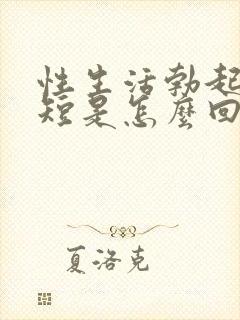 性生活勃起
短是怎麼回
夏洛克